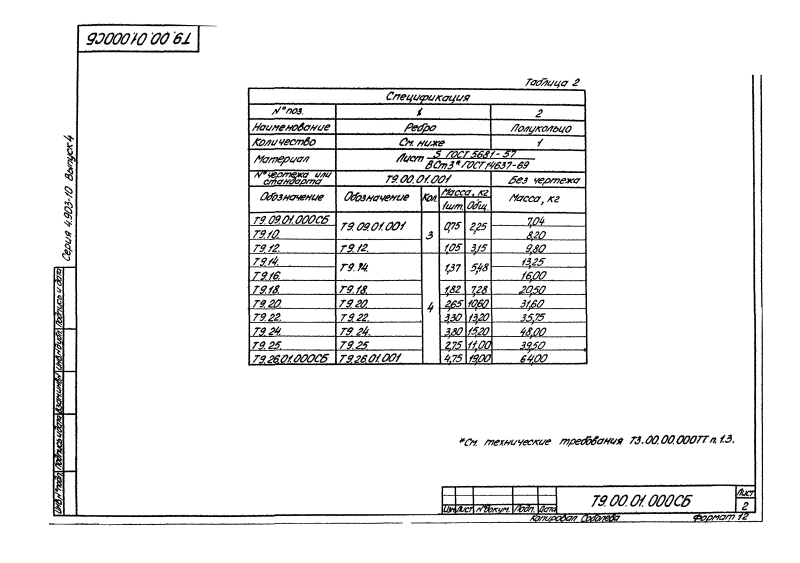 Т9.00.01.000СБ
Серия 4.903-10 Выпуск 4
Таблица 2
Спецификация
№ поз. 1 2
Наименование Ребро Полукольцо
Количество См. ниже 1
Материал Лист S ГОСТ 5681-57 / ВСт3* ГОСТ 14637-69
№ чертежа или стандарта Т9.00.01.001 Без чертежа
Обозначение Обозначение Кол. Масса, кг Масса, кг
1шт. Общ.
Т9.09.01.000СБ Т9.09.01.001 3 0,75 2,25 7,04
Т9.10. 8,20
Т9.12. Т9.12. 1,05 3,15 9,80
Т9.14. Т9.14. 4 1,37 5,48 13,25
Т9.16. 16,00
Т9.18. Т9.18. 1,82 7,28 20,50
Т9.20. Т9.20. 2,65 10,60 31,60
Т9.22. Т9.22. 3,30 13,20 35,75
Т9.24. Т9.24. 3,80 15,20 48,00
Т9.25. Т9.25 2,75 11,00 39,50
Т9.26.01.000СБ Т9.26.01.001 4,75 19,00 64,00
*См. технические требования Т3.00.00.000ТТ п.1.3.
Инв.№ подл. Подпись и дата Взам.инв.№ Инв.№ дубл. Подпись и дата
Изм. Лист № докум. Подп. Дата
Т9.00.01.000СБ
Лист
2
Копировал Соболева Формат 12